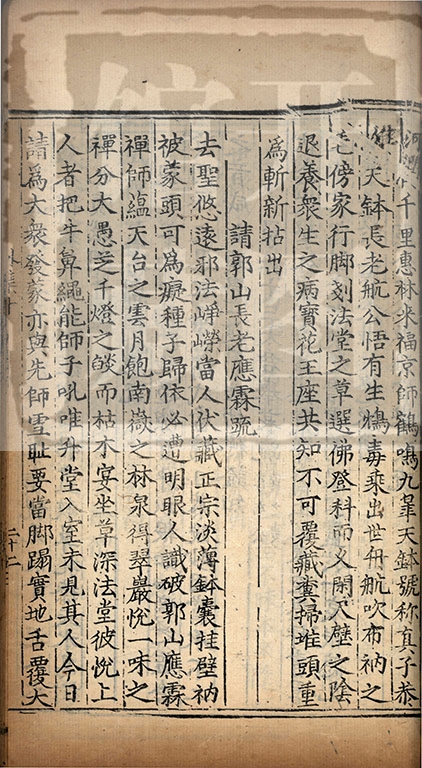 河潤千里惠林來福京師鶴鳴九皋天鉢號稱真子恭
惟天鉢長老航公悟有生鴆毒乘出世舟航吹布衲之
毛傍家行脚刻法堂之草選佛登科而又閑尺璧之陰
退養衆生之病寶花王座共知不可覆藏糞掃堆頭重
為斬新拈出
請郭山長老應霖疏
去聖悠遠邪法嶸嶸當人伏藏正宗淡薄鉢囊挂壁衲
被蒙頭可為癡種子歸依必遭明眼人識破郭山應霖
禪師蘊天台之雲月飽南嶽之林泉得翠巖悅一味之
禪分大愚芝千燈之燄而枯木宴坐草深法堂彼悅上
人者把牛鼻繩能師子吼唯升堂入室未見其人今日
請為大衆發蒙亦與先師雪耻要當脚蹋實地舌覆大
二十二